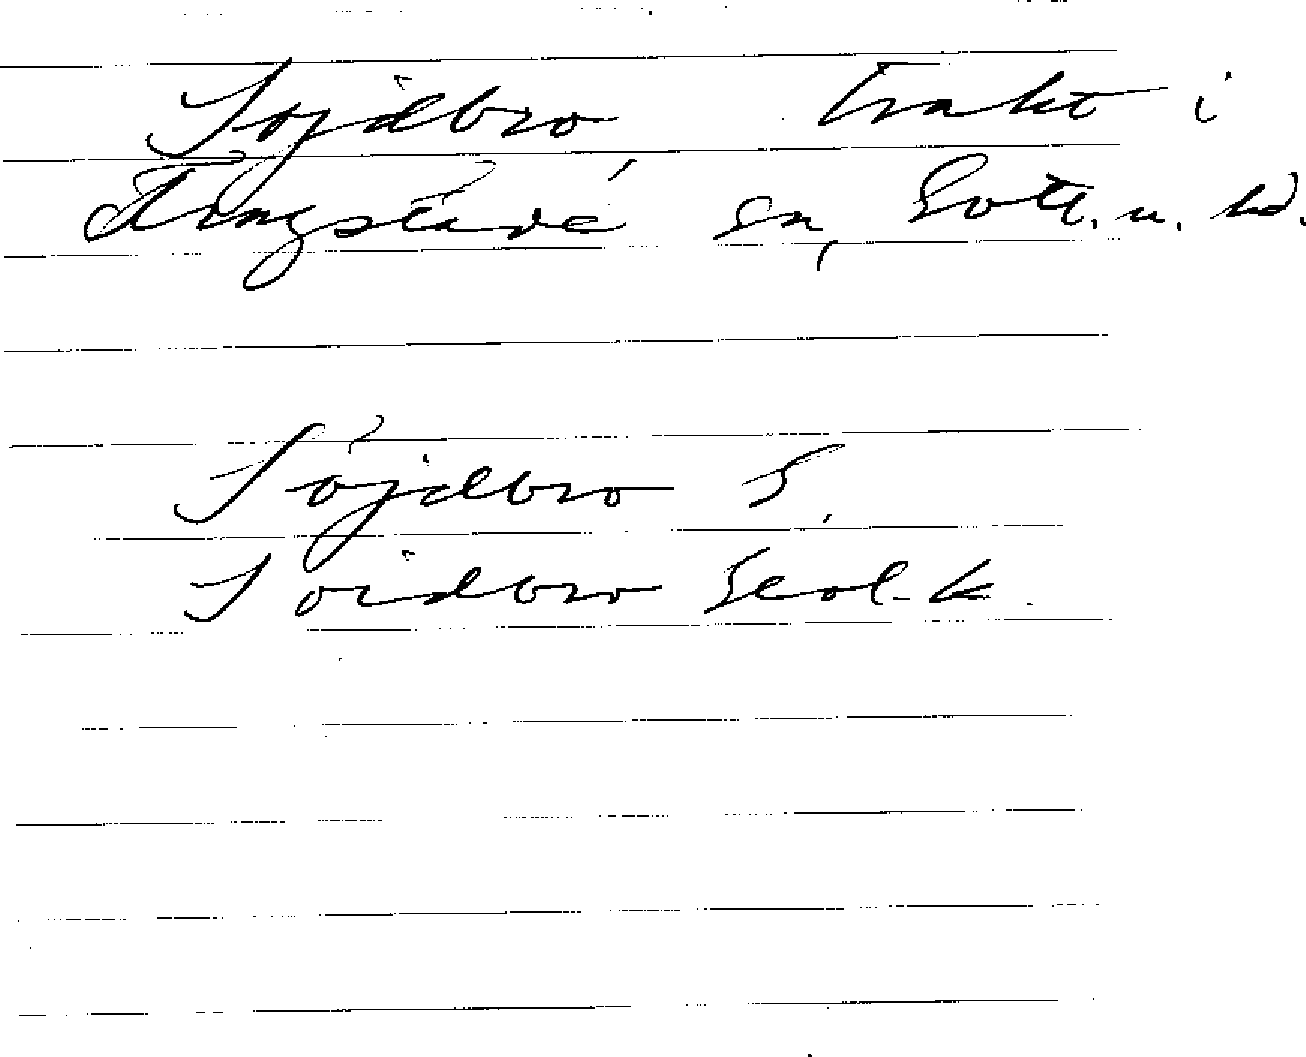 Sojdbro trakt i
Tingstäde sn, Gotl. n. hd.
Sojdbro S.
Soidbro Geol. k.